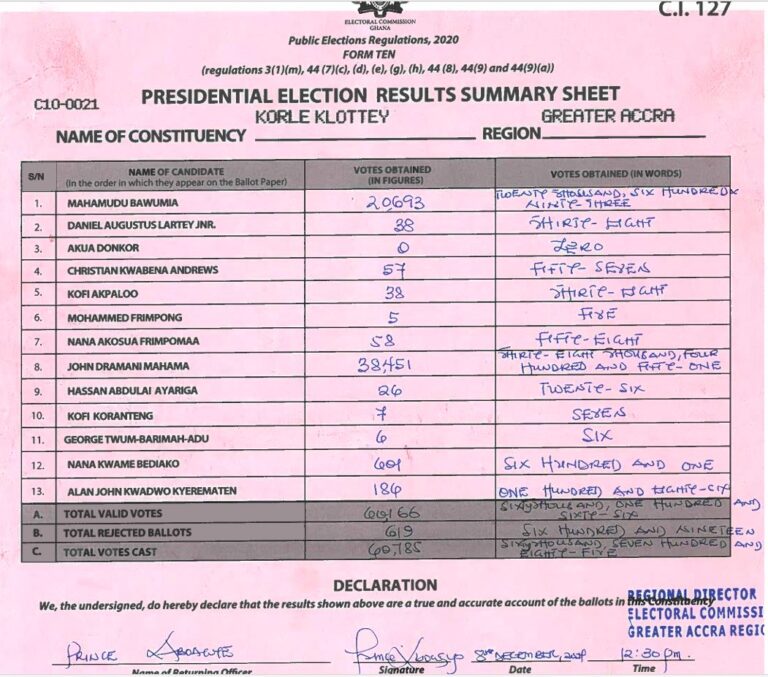 C.I. 127
ELECTORAL COMMISSION
GHANA
Public Elections Regulations, 2020
FORM TEN
(regulations 3(1)(m), 44 (7)(c), (d), (e), (g), (h), 44 (8), 44(9) and 44(9)(a))
C10-0021
PRESIDENTIAL ELECTION RESULTS SUMMARY SHEET
NAME OF CONSTITUENCY KORLE KLOTTEY REGION GREATER ACCRA
S/N NAME OF CANDIDATE (In the order in which they appear on the Ballot Paper) VOTES OBTAINED (IN FIGURES) VOTES OBTAINED (IN WORDS)
1. MAHAMUDU BAWUMIA 20693 TWENTY THOUSAND, SIX HUNDRED NINTE-THREE
2. DANIEL AUGUSTUS LARTEY JNR. 38 THIRTY-EIGHT
3. AKUA DONKOR 0 ZERO
4. CHRISTIAN KWABENA ANDREWS 57 FIFTY-SEVEN
5. KOFI AKPALOO 38 THIRTY-EIGHT
6. MOHAMMED FRIMPONG 5 FIVE
7. NANA AKOSUA FRIMPOMAA 58 FIFTY-EIGHT
8. JOHN DRAMANI MAHAMA 38,451 THIRTY-EIGHT THOUSAND, FOUR HUNDRED AND FIFTY-ONE
9. HASSAN ABDULAI AYARIGA 26 TWENTY-SIX
10. KOFI KORANTENG 7 SEVEN
11. GEORGE TWUM-BARIMAH-ADU 6 SIX
12. NANA KWAME BEDIAKO 601 SIX HUNDRED AND ONE
13. ALAN JOHN KWADWO KYEREMATEN 186 ONE HUNDRED AND EIGHTY-SIX
A. TOTAL VALID VOTES 60,166 SIXTY THOUSAND, ONE HUNDRED AND SIXTY-SIX
B. TOTAL REJECTED BALLOTS 619 SIX HUNDRED AND NINETEEN
C. TOTAL VOTES CAST 60,785 SIXTY THOUSAND, SEVEN HUNDRED AND EIGHTY-FIVE
DECLARATION
We, the undersigned, do hereby declare that the results shown above are a true and accurate account of the ballots in this Constituency
REGIONAL DIRECTOR
ELECTORAL COMMISSI
GREATER ACCRA REGIO
PRINCE 8TH DECEMBER, 2024 12:30pm.
Name of Returning Officer Signature Date Time